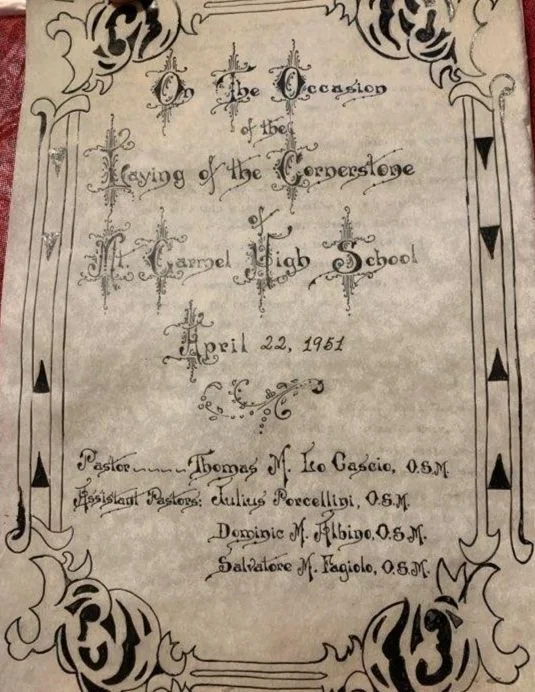 On The Occasion
of the
Laying of the Cornerstone
of
Mt. Carmel High School
April 22, 1951
Pastor ---- Thomas M. Lo Cascio, O.S.M.
Assistant Pastors: Julius Porcellini, O.S.M.
Dominic M. Albino, O.S.M.
Salvatore M. Fagiolo, O.S.M.